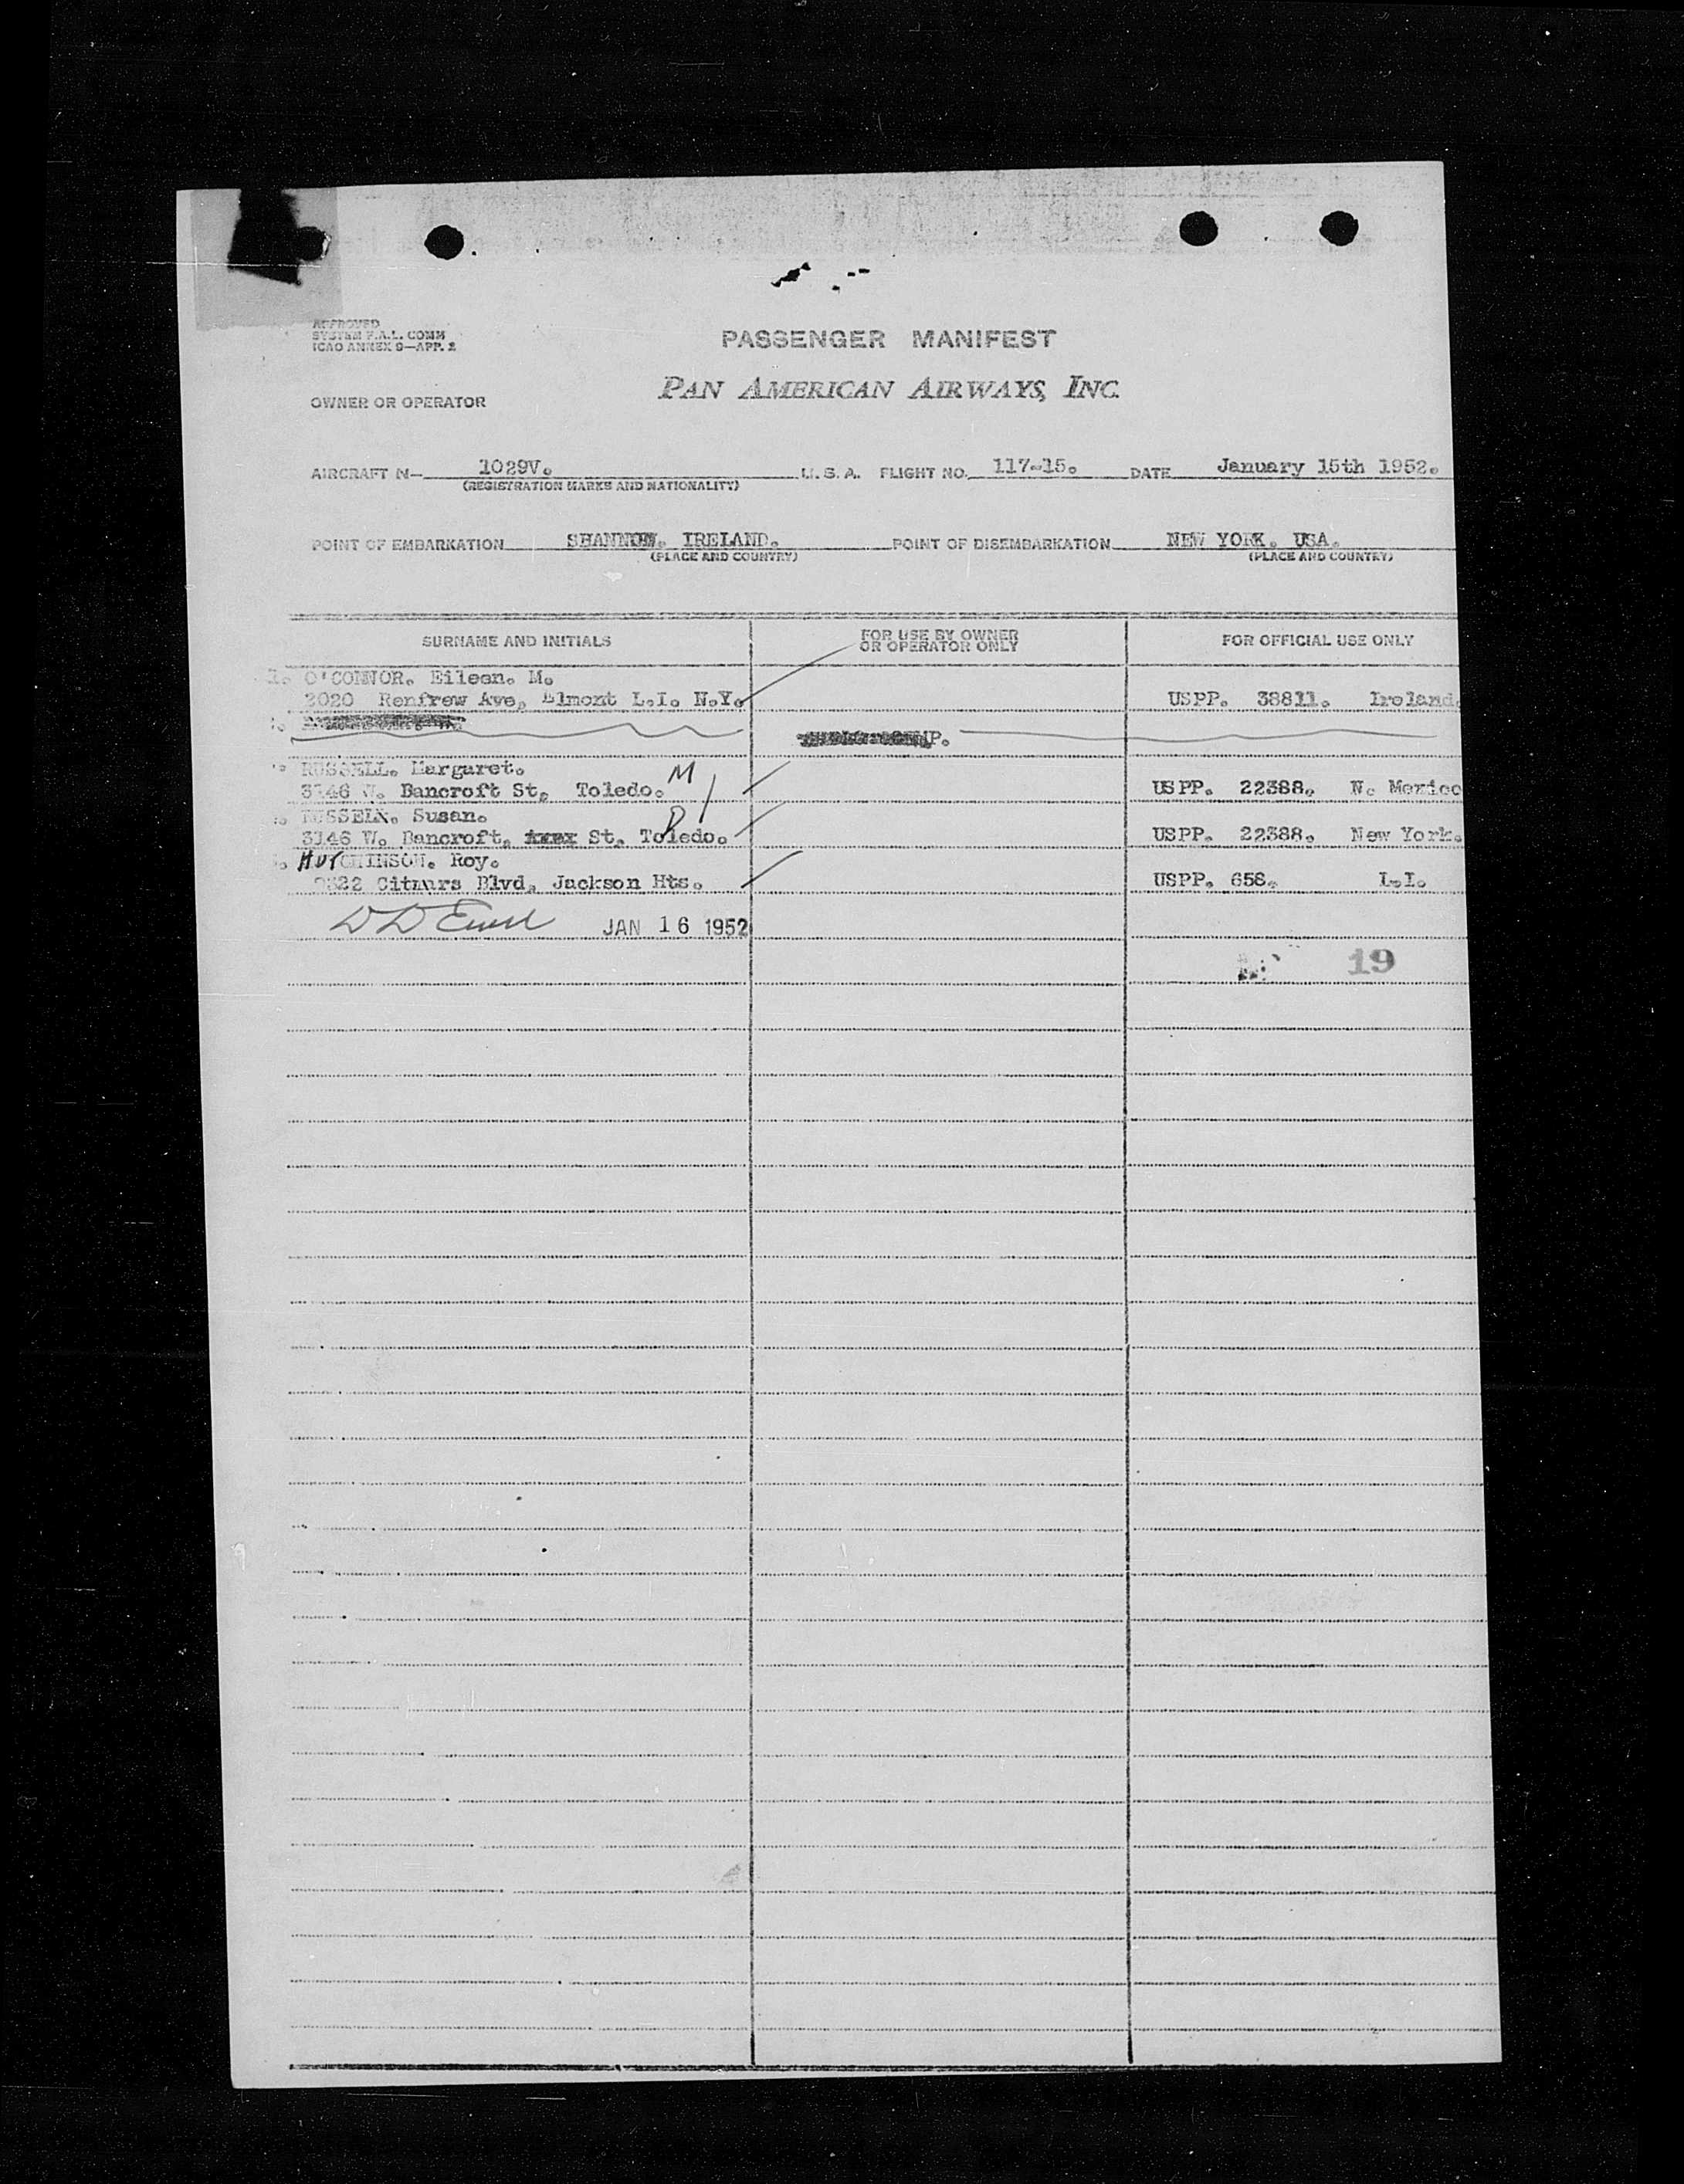 APPROVED
SYSTEM F.A.L. COMM
ICAO ANNEX 9—APP. 2
PASSENGER MANIFEST
PAN AMERICAN AIRWAYS, INC.
OWNER OR OPERATOR
AIRCRAFT N— 1029V. U. S. A. FLIGHT NO. 117-15. DATE January 15th 1952.
(REGISTRATION MARKS AND NATIONALITY)
POINT OF EMBARKATION SHANNON. IRELAND. POINT OF DISEMBARKATION NEW YORK. USA.
(PLACE AND COUNTRY) (PLACE AND COUNTRY)
SURNAME AND INITIALS FOR USE BY OWNER OR OPERATOR ONLY FOR OFFICIAL USE ONLY
1. O'CONNOR. Eileen. M.
2020 Renfrew Ave, Elmont L.I. N.Y. USPP. 38811. Ireland.
P.
RUSSELL. Margaret. M
3146 W. Bancroft St, Toledo. USPP. 22388. N. Mexico
Susan.
3146 W. Bancroft, St. Toledo. USPP. 22388. New York.
HUTCHINSON. Roy.
Blvd, Jackson Hts. USPP. 658. L.I.
JAN 16 1952
19